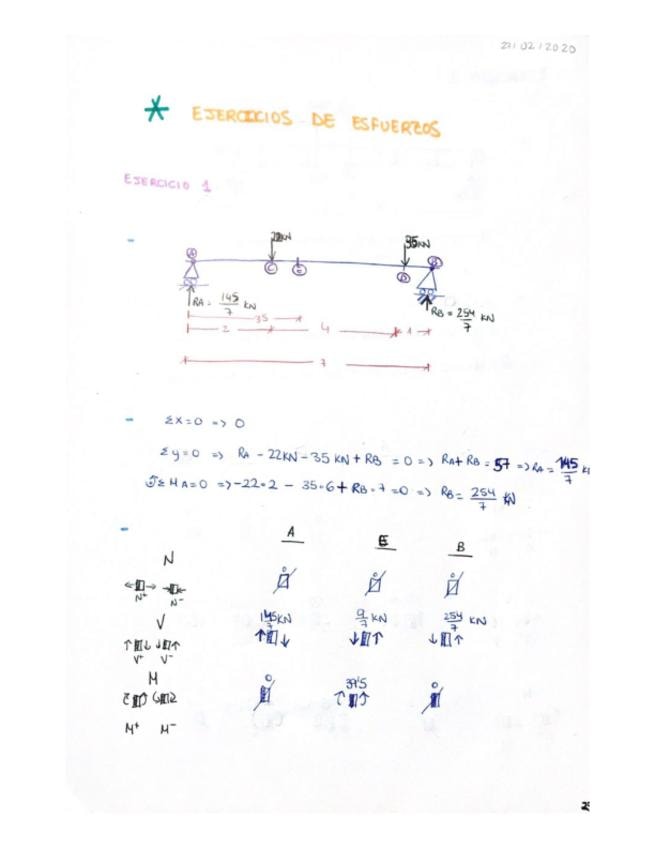 27/02/2020
* EJERCICIOS DE ESFUERZOS
EJERCICIO 1
22KN 35KN
A C E D B
RA = 145/7 KN RB = 254/7 KN
3'5
2 4 1
7
ΣX=0 => 0
Σy=0 => RA - 22KN - 35KN + RB = 0 => RA + RB = 57 => RA = 145/7
ΣMA=0 => -22·2 - 35·6 + RB·7 = 0 => RB = 254/7 KN
A E B
N
N+ N-
V 145/7 KN 9/7 KN 254/7 KN
V+ V-
M 39'5
M+ M-